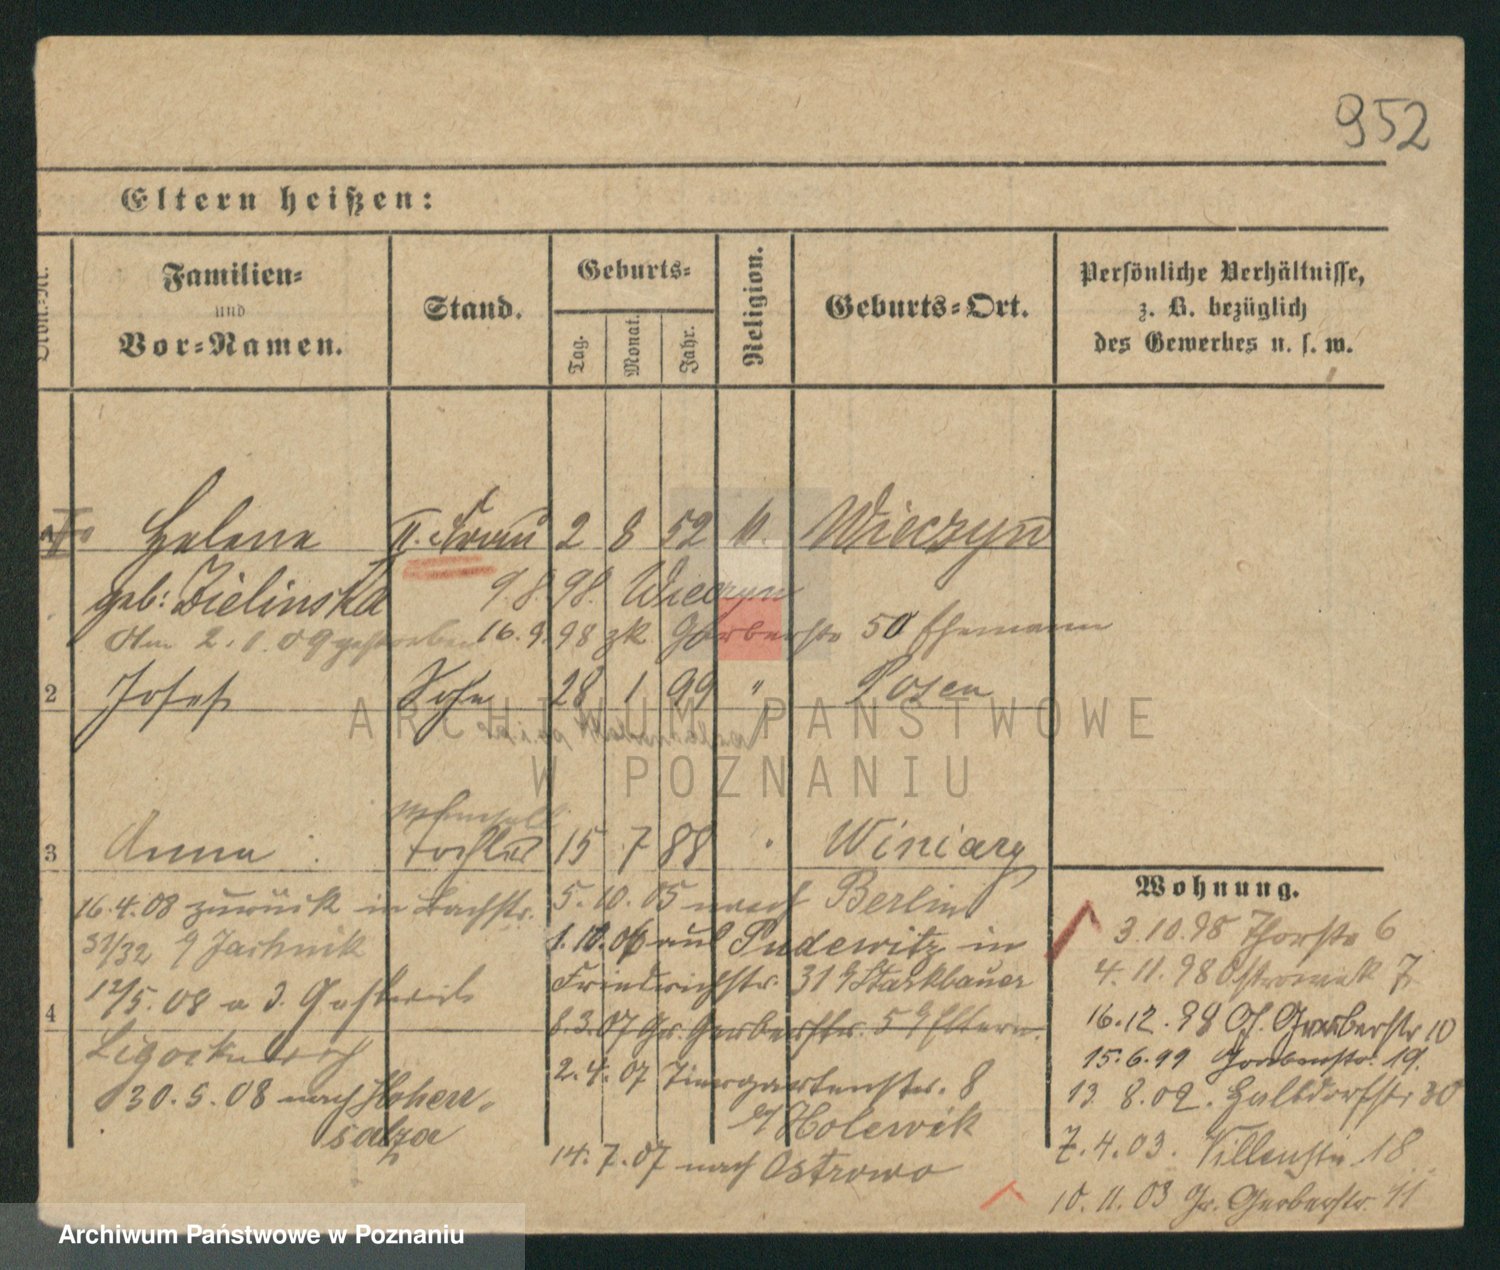 952
Eltern heißen:
Familien-
und
Vor-Namen.
Stand.
Geburts-
Tag.
Monat.
Jahr.
Religion.
Geburts-Ort.
Persönliche Verhältnisse,
z. B. bezüglich
des Gewerbes u. s. w.
Helene II. Frau 2 8 52 k. Wieczyn
geb: Zielinska 9.8.98. Wieczyn
Am 2.1.09 gestorben 16.9.98 zk Gerberstr 50 Ehemann
2 Josef Sohn 28 1 99 " Posen
3 Anna Tochter 15 7 88 " Winiary
16.4.08 zurück in Bachstr. 5.10.05 nach Berlin
31/32 1.10.06 aus Pudewitz in
12/5.08 Friedrichstr. 31 Starkbauer
4 8.3.07 Gr. Gerberstr. 5 Eltern.
30.5.08 nach Hohen- 2.4.07 Tiergartenstr. 8
salza Holewik
14.7.07 nach Ostrowo
Wohnung.
3.10.98 Thorstr 6
4.11.98 Ostrowek 7.
16.12.98 Gerberstr 10
15.6.99 Grabenstr. 19.
13 8.02. Halbdorfstr 30
7.4.03. Villenstr 18
10.11.03 Gr. Gerberstr. 41
ARCHIWUM PAŃSTWOWE
W POZNANIU
Archiwum Państwowe w Poznaniu